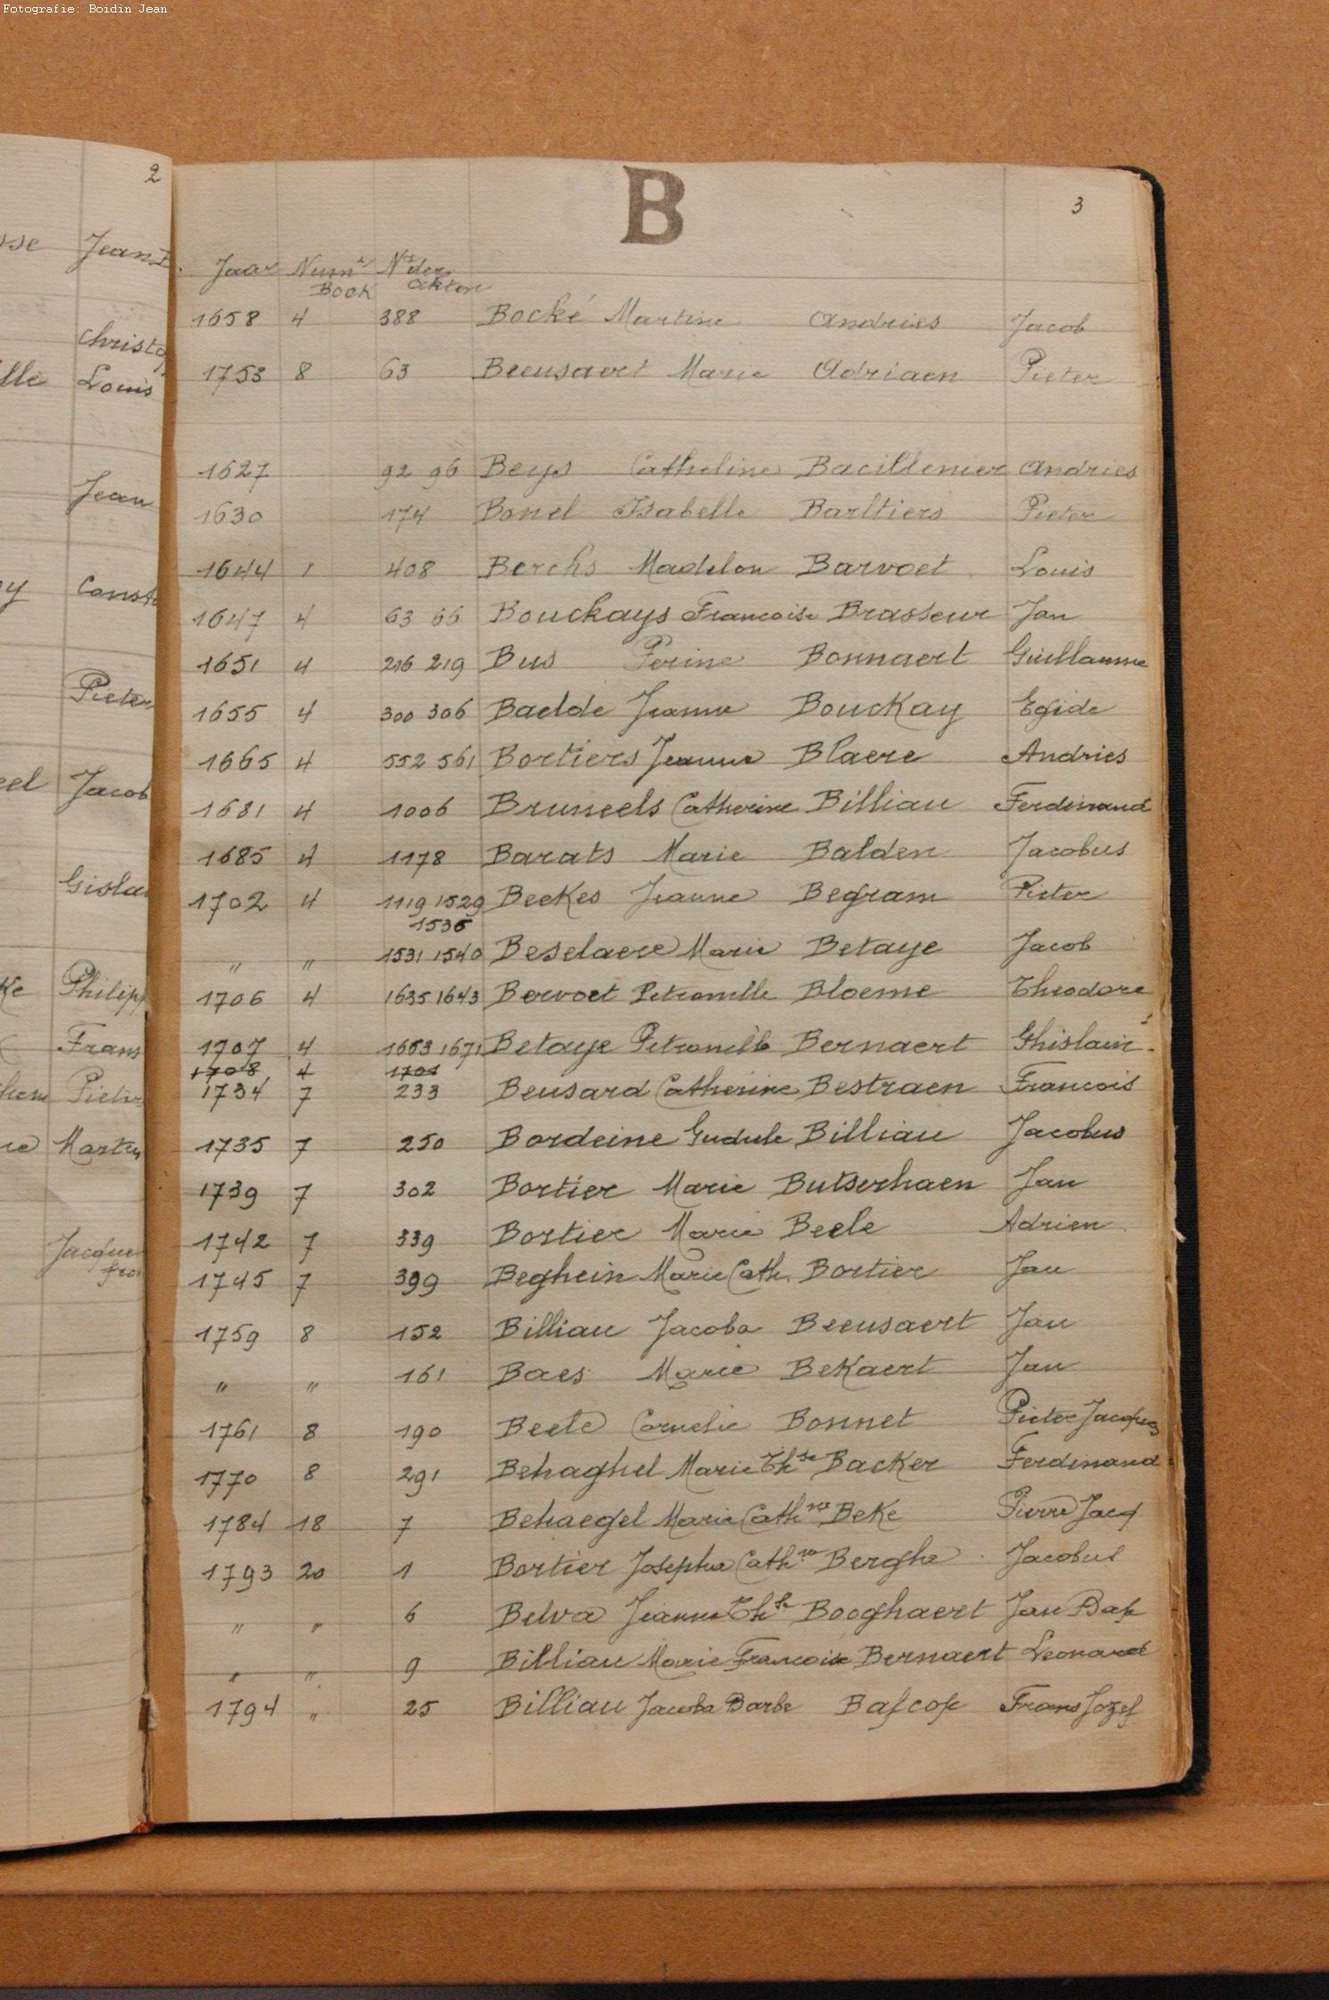 Fotografie: Boidin Jean
2
sse Jean B
Christo
lle Louis
Jean
oy Consta
Pieter
eel Jacob
Gislai
Ke Philipp
Frans
Pieter
re Martin
Jacques
B
3
Jaar Numr Nrs der
Boek akten
1658 4 388 Bocké Martine Andries Jacob
1753 8 63 Beeusaert Marie Adriaen Pieter
1627 92 96 Beys Catheline Bacillenier Andries
1630 174 Bonel Isabelle Barltiers Pieter
1644 1 408 Berchs Madelon Barvoet Louis
1647 4 63 66 Bouckays Francoise Brasseur Jan
1651 4 216 219 Bus Perine Bonnaert Guillaume
1655 4 300 306 Baelde Jeanne Bouckay Egide
1665 4 552 561 Bortiers Jeanne Blaere Andries
1681 4 1006 Bruneels Catherine Billiau Ferdinand
1685 4 1178 Barats Marie Balden Jacobus
1702 4 1119 1529 Beekes Jeanne Begram Pieter
1535
" " 1531 1540 Beselaere Marie Betaye Jacob
1706 4 1635 1643 Bervoet Petronille Bloeme Theodore
1707 4 1663 1671 Betaye Petronille Bernaert Ghislain
1708 4 1701
1734 7 233 Beusard Catherine Bestraen Francois
1735 7 250 Bordeine Gudule Billiau Jacobus
1739 7 302 Bortier Marie Butserhaen Jan
1742 7 339 Bortier Marie Beele Adrien
1745 7 399 Beghein Marie Cath. Bortier Jan
1759 8 152 Billiau Jacoba Beeusaert Jan
" " 161 Baes Marie BeKaert Jan
1761 8 190 Beele Cornelie Bonnet Pieter Jacques
1770 8 291 Behaghel Marie Thse Backer Ferdinand
1784 18 7 Behaegel Marie Cathne Beke Pierre Jacq
1793 20 1 Bortier Josepha Cathne Berghe Jacobus
" " 6 Belva Jeanne Thse Booghaert Jan Bapt
" " 9 Billiau Marie Francoise Bernaert Leonard
1794 " 25 Billiau Jacoba Barbe Bascop Frans Jozef